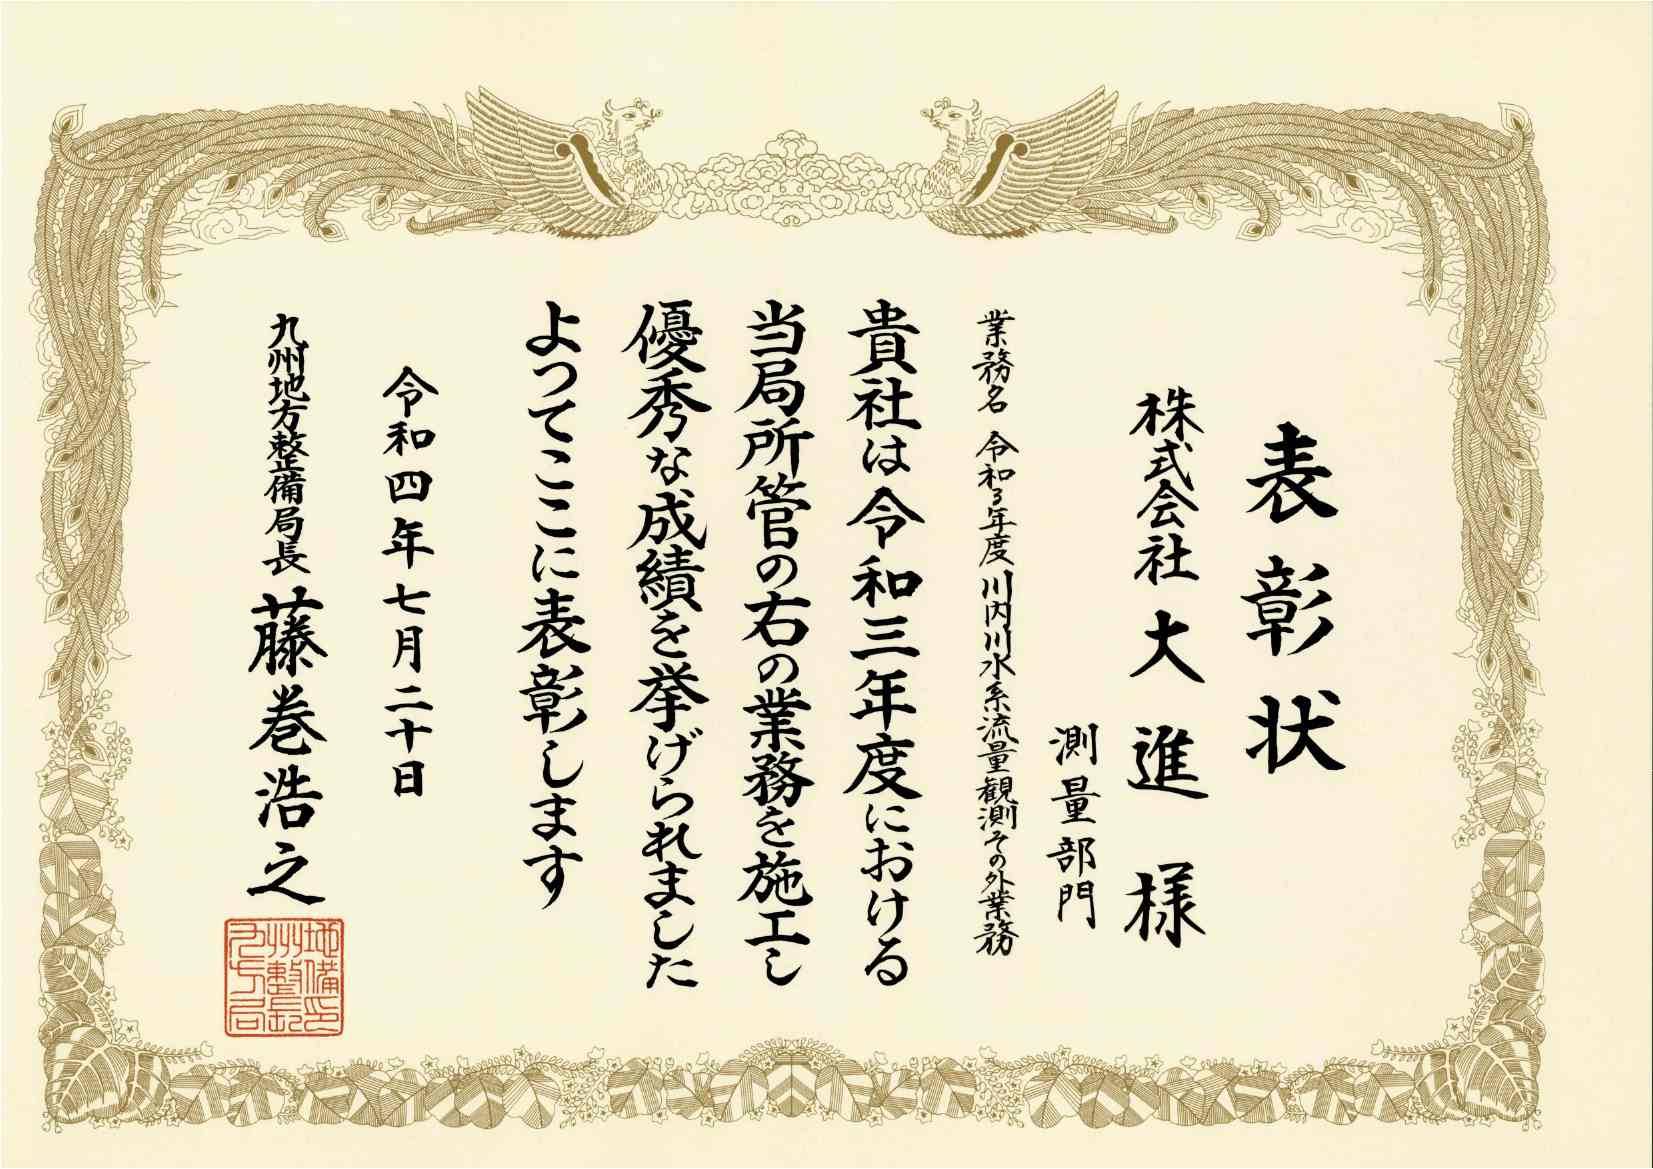 表彰状
株式会社大進様
測量部門
業務名 令和3年度川内川水系流量観測その外業務
貴社は令和三年度における
当局所管の右の業務を施工し
優秀な成績を挙げられました
よってここに表彰します
令和四年七月二十日
九州地方整備局長 藤巻浩之
地備印
州整長
九方局